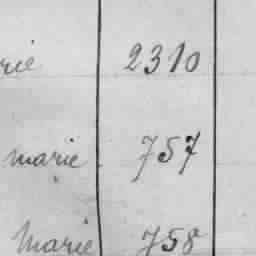 rie 2310
marie 757
Marie 758